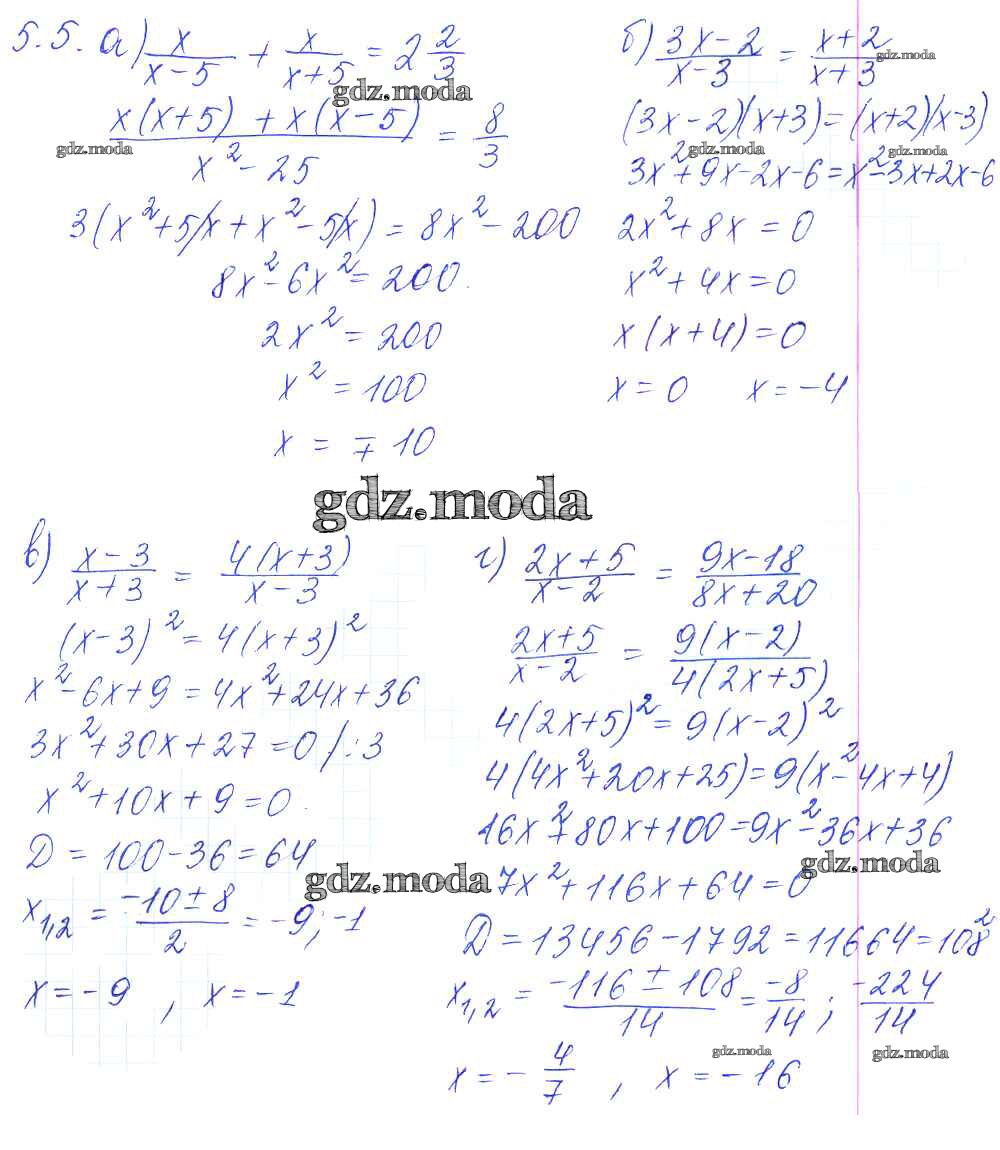 5.5. а) x/(x-5) + x/(x+5) = 2 2/3
gdz.moda
(x(x+5) + x(x-5))/(x²-25) = 8/3
gdz.moda
3(x²+5x+x²-5x) = 8x²-200
8x²-6x² = 200.
2x² = 200
x² = 100
x = ∓10
б) (3x-2)/(x-3) = (x+2)/(x+3)
gdz.moda
(3x-2)(x+3)=(x+2)(x-3)
gdz.moda gdz.moda
3x²+9x-2x-6=x²-3x+2x-6
2x²+8x=0
x²+4x=0
x(x+4)=0
x=0 x=-4
gdz.moda
в) (x-3)/(x+3) = 4(x+3)/(x-3)
(x-3)² = 4(x+3)²
x²-6x+9 = 4x²+24x+36
3x²+30x+27=0 /:3
x²+10x+9=0.
D = 100-36=64
gdz.moda
x1,2 = (-10±8)/2 = -9; -1
x=-9 , x=-1
г) (2x+5)/(x-2) = (9x-18)/(8x+20)
(2x+5)/(x-2) = 9(x-2)/4(2x+5)
4(2x+5)² = 9(x-2)²
4(4x²+20x+25)=9(x²-4x+4)
16x²+80x+100=9x²-36x+36
gdz.moda
7x²+116x+64=0
D=13456-1792=11664=108²
x1,2 = (-116±108)/14 = -8/14 ; -224/14
gdz.moda gdz.moda
x=-4/7 , x=-16